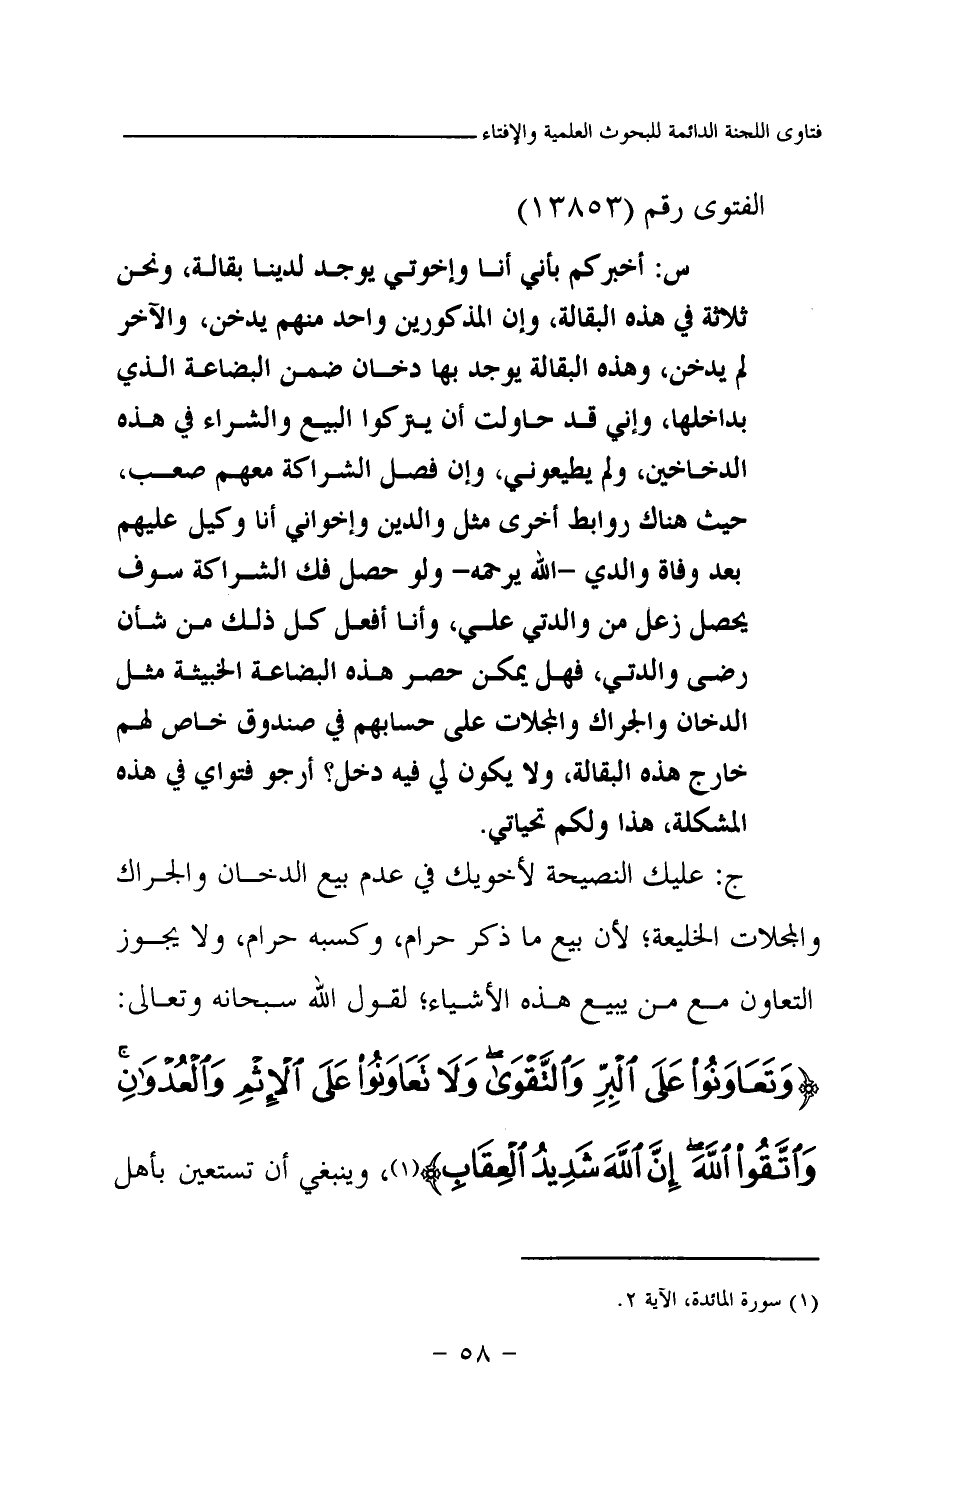 فتاوى اللجنة الدائمة للبحوث العلمية والإفتاء
الفتوى رقم (١٣٨٥٣)
س: أخبركم بأني أنا وإخوتي يوجد لدينا بقالة، ونحن
ثلاثة في هذه البقالة، وإن المذكورين واحد منهم يدخن، والآخر
لم يدخن، وهذه البقالة يوجد بها دخان ضمن البضاعة الذي
بداخلها، وإني قد حاولت أن يتركوا البيع والشراء في هذه
الدخاخين، ولم يطيعوني، وإن فصل الشراكة معهم صعب،
حيث هناك روابط أخرى مثل والدين وإخواني أنا وكيل عليهم
بعد وفاة والدي -الله يرحمه- ولو حصل فك الشراكة سوف
يحصل زعل من والدتي علي، وأنا أفعل كل ذلك من شأن
رضى والدتي، فهل يمكن حصر هذه البضاعة الخبيثة مثل
الدخان والجراك والمجلات على حسابهم في صندوق خاص لهم
خارج هذه البقالة، ولا يكون لي فيه دخل؟ أرجو فتواي في هذه
المشكلة، هذا ولكم تحياتي.
ج: عليك النصيحة لأخويك في عدم بيع الدخان والجراك
والمجلات الخليعة؛ لأن بيع ما ذكر حرام، وكسبه حرام، ولا يجوز
التعاون مع من يبيع هذه الأشياء؛ لقول الله سبحانه وتعالى:
﴿وَتَعَاوَنُوا۟ عَلَى ٱلْبِرِّ وَٱلتَّقْوَىٰ ۖ وَلَا تَعَاوَنُوا۟ عَلَى ٱلْإِثْمِ وَٱلْعُدْوَٰنِ ۚ
وَٱتَّقُوا۟ ٱللَّهَ ۖ إِنَّ ٱللَّهَ شَدِيدُ ٱلْعِقَابِ﴾(١)، وينبغي أن تستعين بأهل
(١) سورة المائدة، الآية ٢.
- ٥٨ -